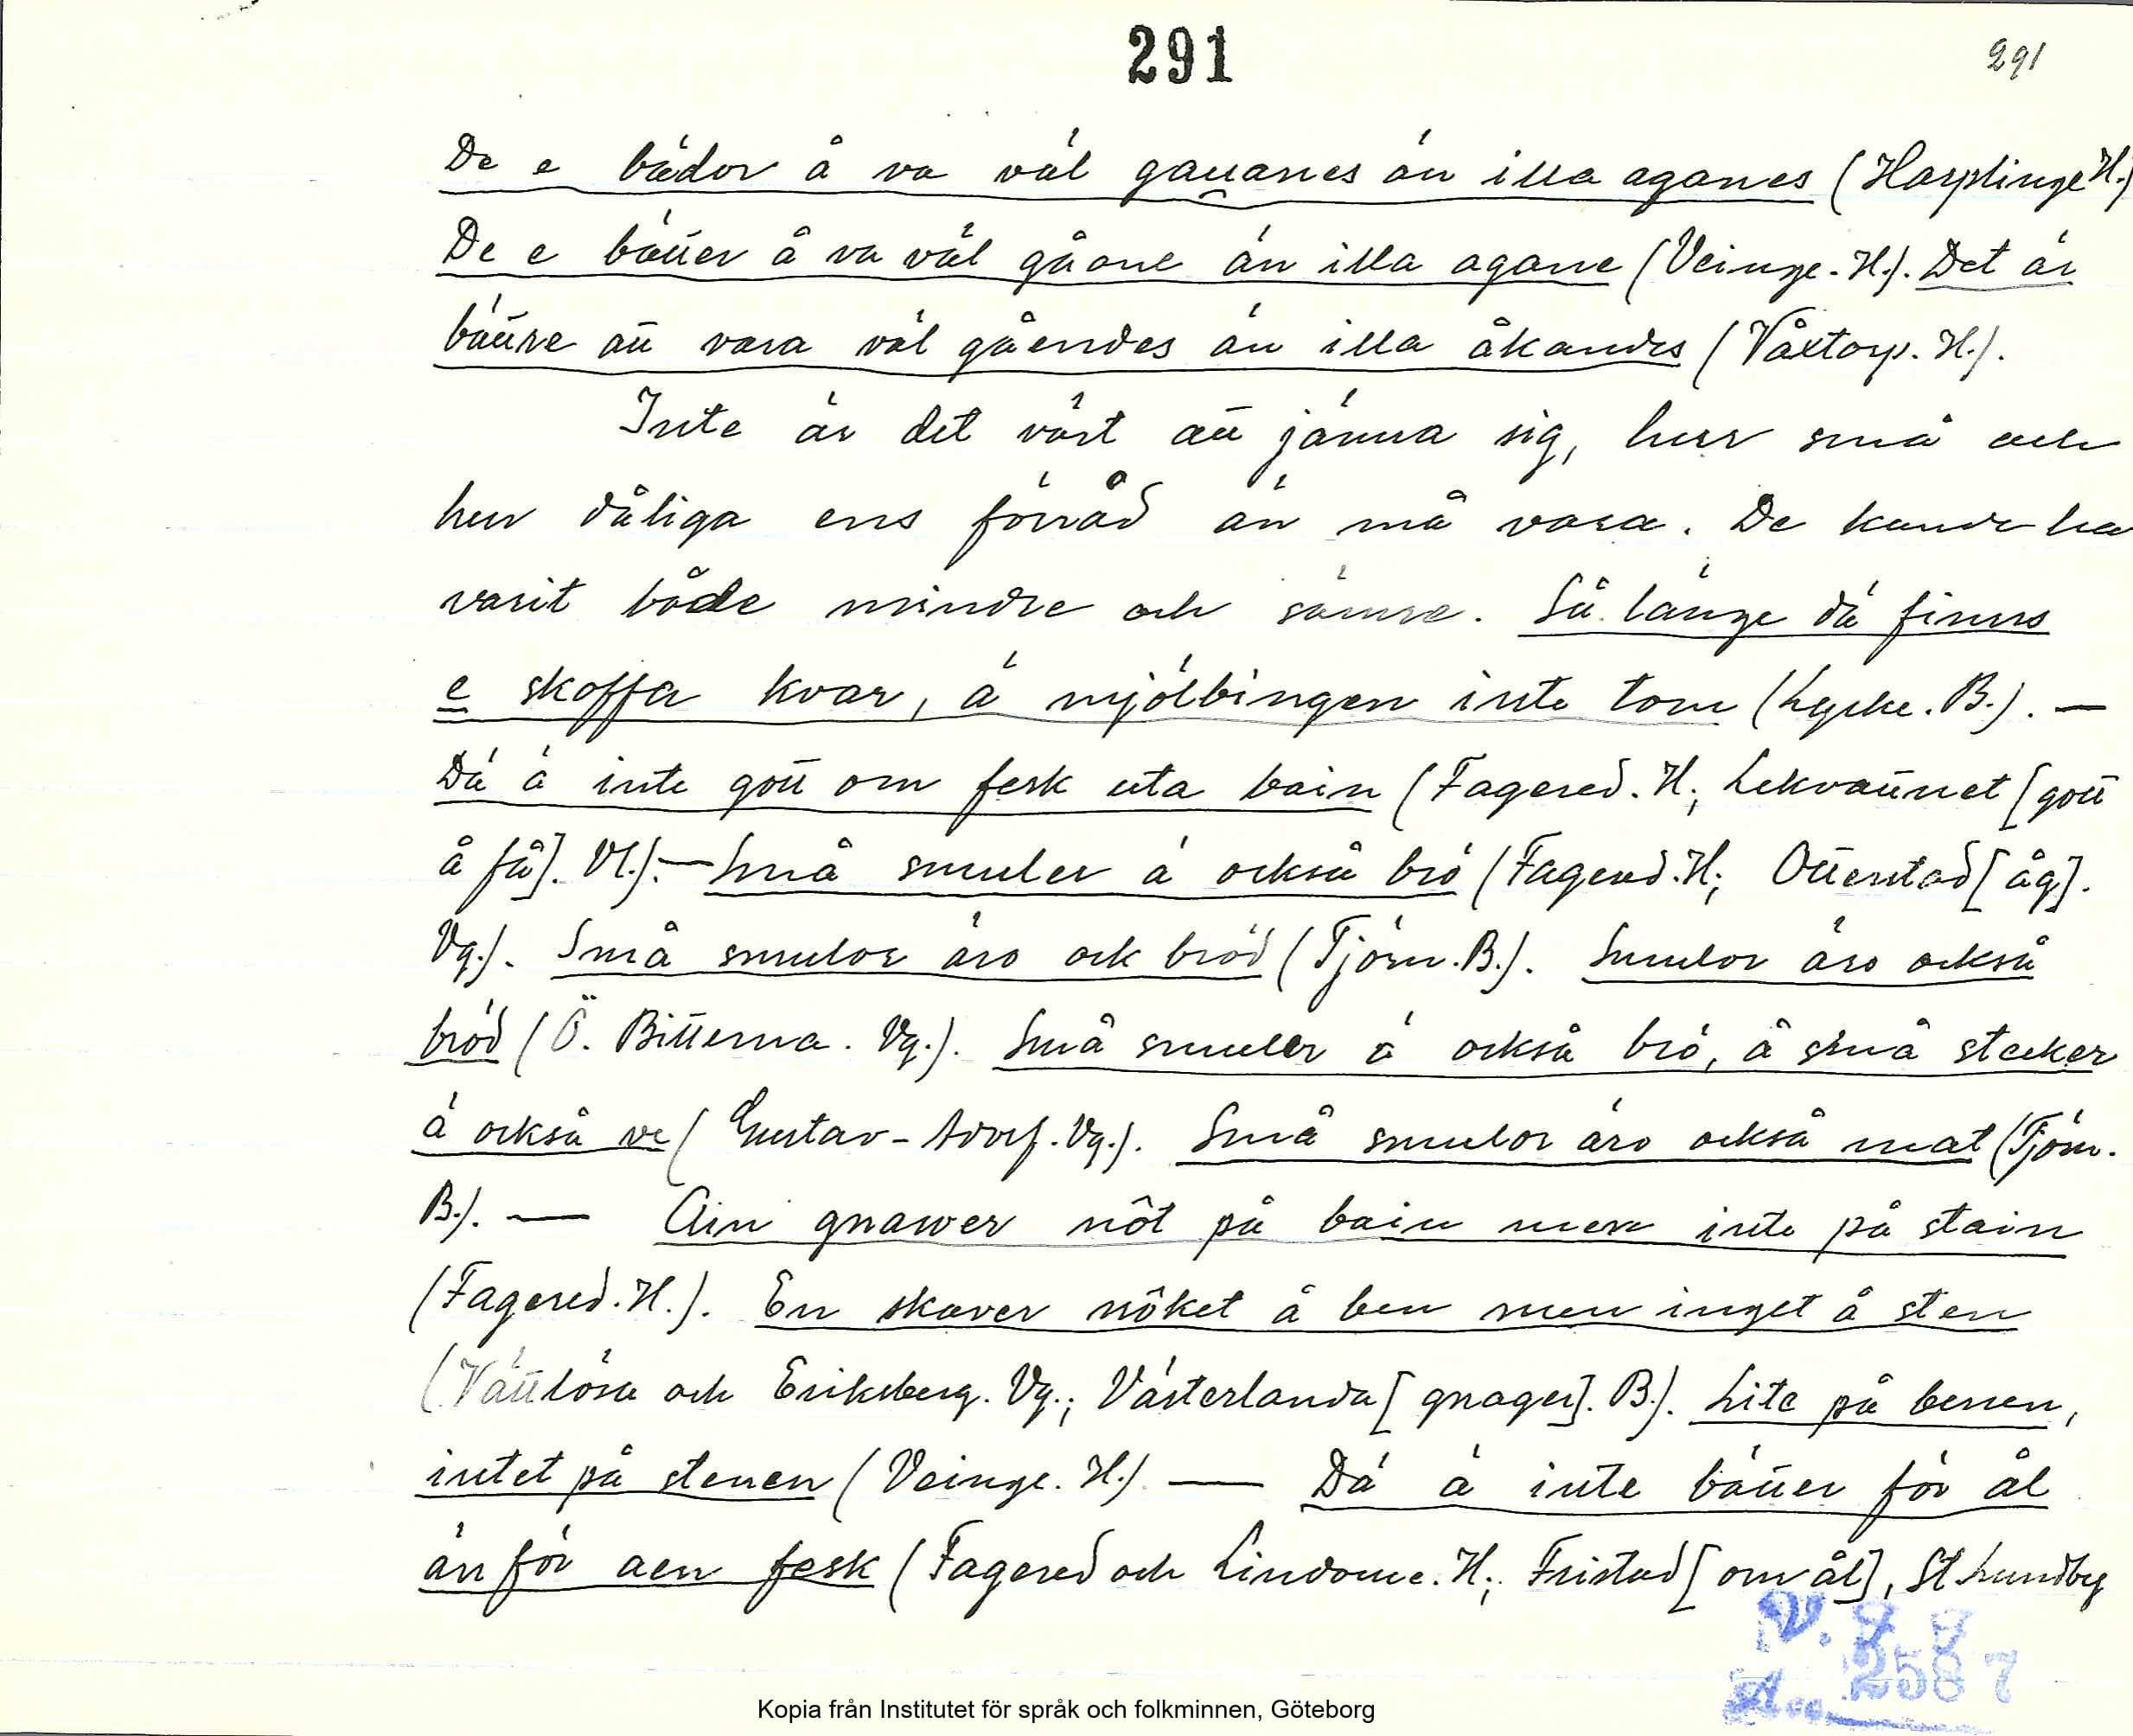 291
291
De e bädor å va väl gauanes än illa aganes (Harplinge H.)
De e bätter å va väl gåone än illa agane (Veinge. H.). Det är
bättre att vara väl gåendes än illa åkandes (Våxtorp. H.).
Inte är det värt att jämra sig, hur små och
hur dåliga ens förråd än må vara. De kunde ha
varit både mindre och sämre. Så länge dä finns
e skoffa kvar, ä mjölbingen inte tom (Lycke. B.). —
Dä ä inte gott om fesk uta bain (Fagered. H; Lekvattnet [gott
å få]. Vl.). — Små smuler ä också brö (Fagered. H; Otterstad [åg].
Vg.). Små smulor äro ock bröd (Tjörn. B.). Smulor äro också
bröd (Ö. Bitterna. Vg.). Små smuler ä också brö, å små stecker
ä också ve (Gustav-Adolf. Vg.). Små smulor äro också mat (Tjörn.
B.). — Ain gnawer nôt på bain men inte på stain
(Fagered. H.). En skaver nôket å ben men inget å sten
(Vättlösa och Eriksberg. Vg.; Västerlanda [gnager]. B.). Lite på benen,
intet på stenen (Veinge. H.) — Dä ä inte bätter för ål
än för aen fesk (Fagered och Lindome. H; Fristad [om ål], St Lundby
V. F. F.
Acc. 2587
Kopia från Institutet för språk och folkminnen, Göteborg